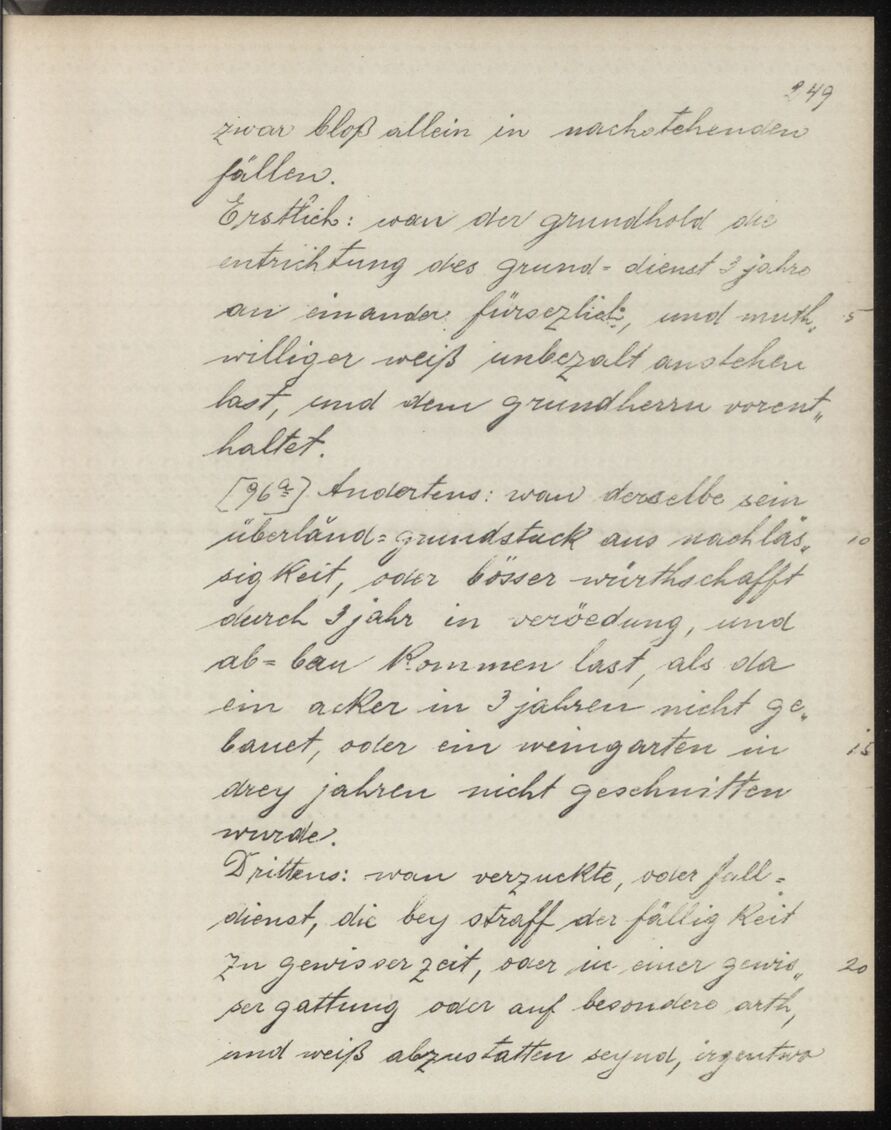 249
zwar bloß allein in nachstehenden
fällen.
Erstlich: wan der grundhold die
entrichtung des grund= dienst 3 jahre
an einander fürsezlich, und muth„ 5
williger weiß unbezalt anstehen
last, und dem grundherrn vorent„
haltet.
[96a] Andertens: wan derselbe sein
überländ=grundstuck aus nachläs„ 10
sigkeit, oder bösser würthschafft
durch 3 jahr in veröedung, und
ab=bau kommen last, als da
ein acker in 3 jahren nicht ge„
bauet, oder ein weingarten in 15
drey jahren nicht geschnitten
wurde.
Drittens: wan verzuckte, oder fall=
dienst, die bey straff der fälligkeit
zu gewisser zeit, oder in einer gewis„ 20
ser gattung oder auf besondere arth,
und weiß abzustatten seynd, irgentwo